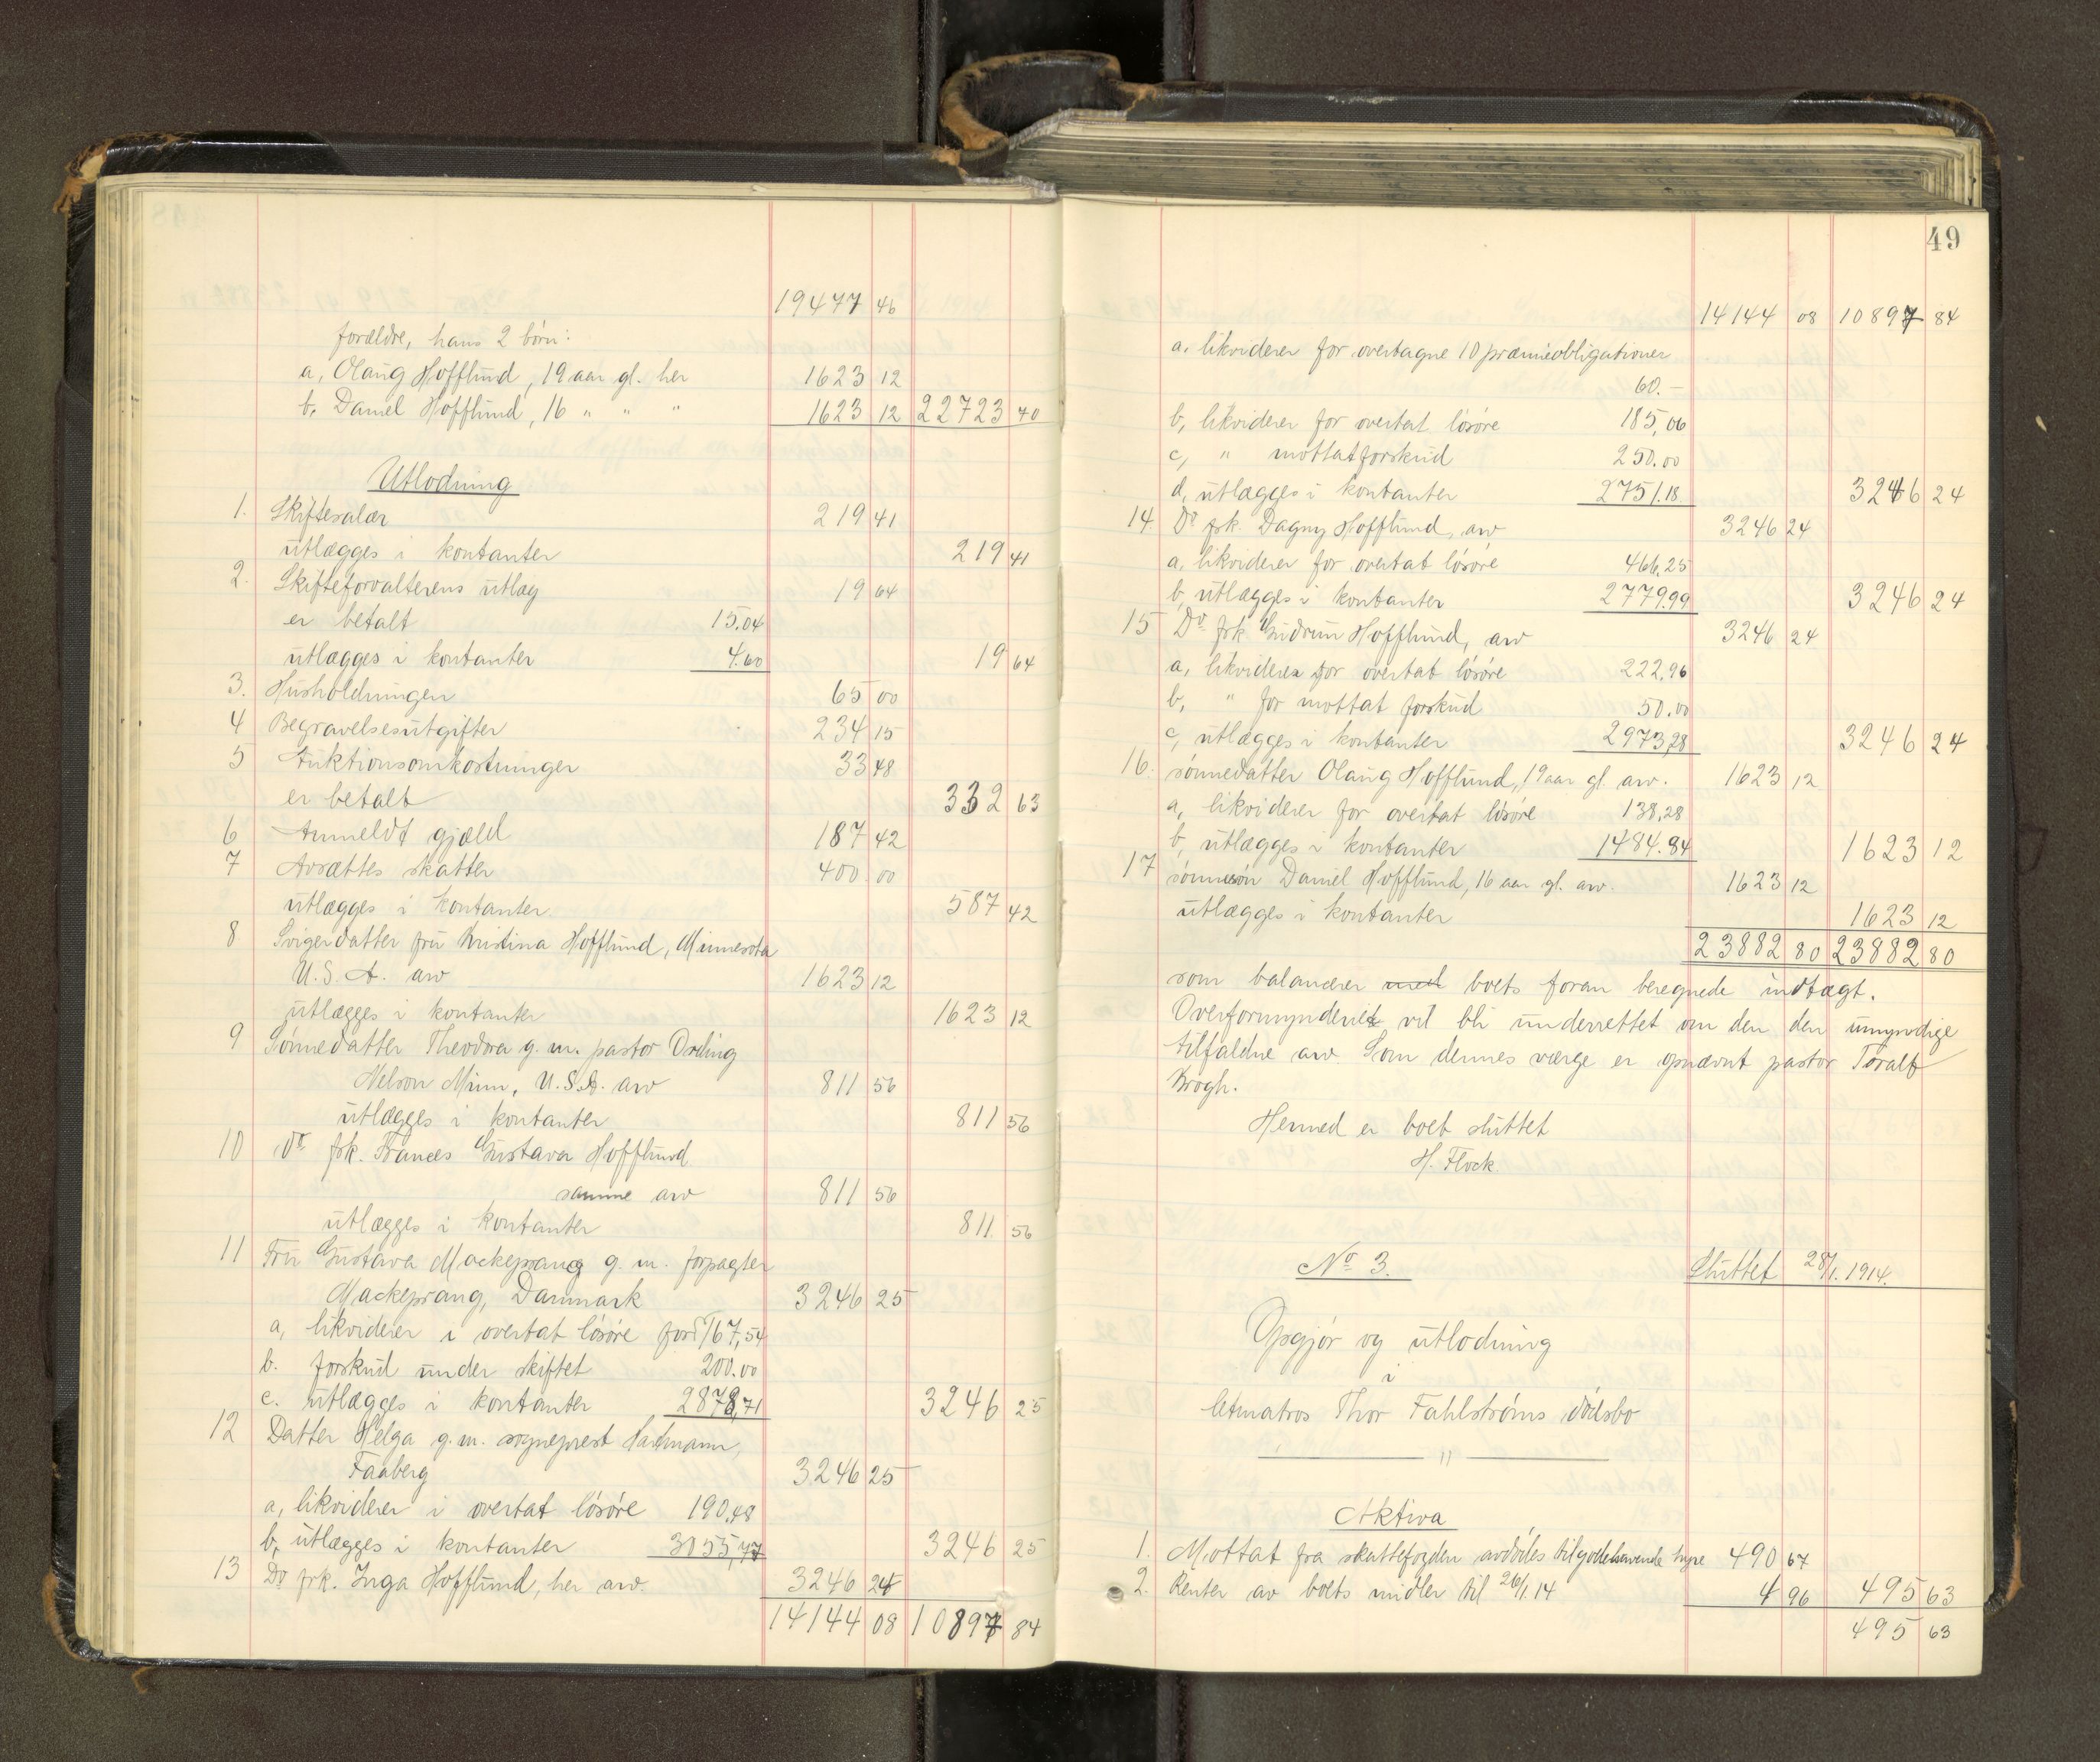 19477 46
forældre, hans 2 börn:
a, Olaug Hofflund, 19 aar gl. her 1623 12
b, Daniel Hofflund, 16 " " " 1623 12 22723 40
Utlodning
1. Skiftesalær 219 41
utlægges i kontanter 219 41
2. Skifteforvalterens utlæg 19 64
er betalt 15.04
utlægges i kontanter 4.60 19 64
3. Husholdningen 65 00
4 Begravelsesutgifter 234 15
5 Auktionsomkostninger 33 48
er betalt 332 63
6 Anmeldt gjæld 187 42
7 Avsættes skatter 400 00
utlægges i kontanter 587 42
8 Svigerdatter fru Kristina Hofflund, Minnesota
U.S.A. arv 1623 12
utlægges i kontanter 1623 12
9 Sönnedatter Theodora g. m. pastor
Nelson Minn, U.S.A. arv 811 56
utlægges i kontanter 811 56
10 Do frk. Frances Gustava Hofflund
samme arv 811 56
utlægges i kontanter 811 56
11 Fru Gustava Mackeprang g. m. forpagter
Mackeprang, Danmark 3246 25
a, likviderer i overtat lösöre for 167,54
b. forskud under skiftet 200.00
c. utlægges i kontanter 2878,71 3246 25
12 Datter Helga g. m. sogneprest Hartmann,
Faaberg 3246 25
a, likviderer i overtat lösöre 190,48
b, utlægges i kontanter 3055,77 3246 25
13 Do frk. Inga Hofflund, her arv. 3246 24
14144 08 10897 84
49
14144 08 10897 84
a, likviderer for overtagne 10 præmieobligationer
60.-
b, likviderer for overtat lösöre 185,06
c, " mottat forskud 250.00
d, utlægges i kontanter 2751.18. 3246 24
14. Do frk. Dagny Hofflund, arv 3246 24
a, likviderer for overtat lösöre 466,25
b, utlægges i kontanter 2779.99 3246 24
15 Do frk. Gudrun Hofflund, arv 3246 24
a, likviderer for overtat lösöre 222,96
b, " for mottat forskud 50.00
c, utlægges i kontanter 2973,28 3246 24
16. sönnedatter Olaug Hofflund, 19 aar gl. arv. 1623 12
a, likviderer for overtat lösöre 138,28
b, utlægges i kontanter 1484.84 1623 12
17 sönnesön Daniel Hofflund, 16 aar gl. arv. 1623 12
utlægges i kontanter 1623 12
23882 80 23882 80
som balancerer med boets foran beregnede indtægt.
Overformynderiet vil bli underrettet om den den umyndige
tilfaldne arv. Som dennes værge er opnævnt pastor Toralf
Krogh.
Hermed er boet sluttet
H. Flock
No 3. Sluttet 28/1. 1914.
Opgjör og utlodning
i
letmatros Thor Fahlströms dödsbo
"
Aktiva
1. Mottat fra skattefogden avdödes tilgodehavende hyre 490 67
2. Renter av boets midler til 26/1 14 4 96 495 63
495 63